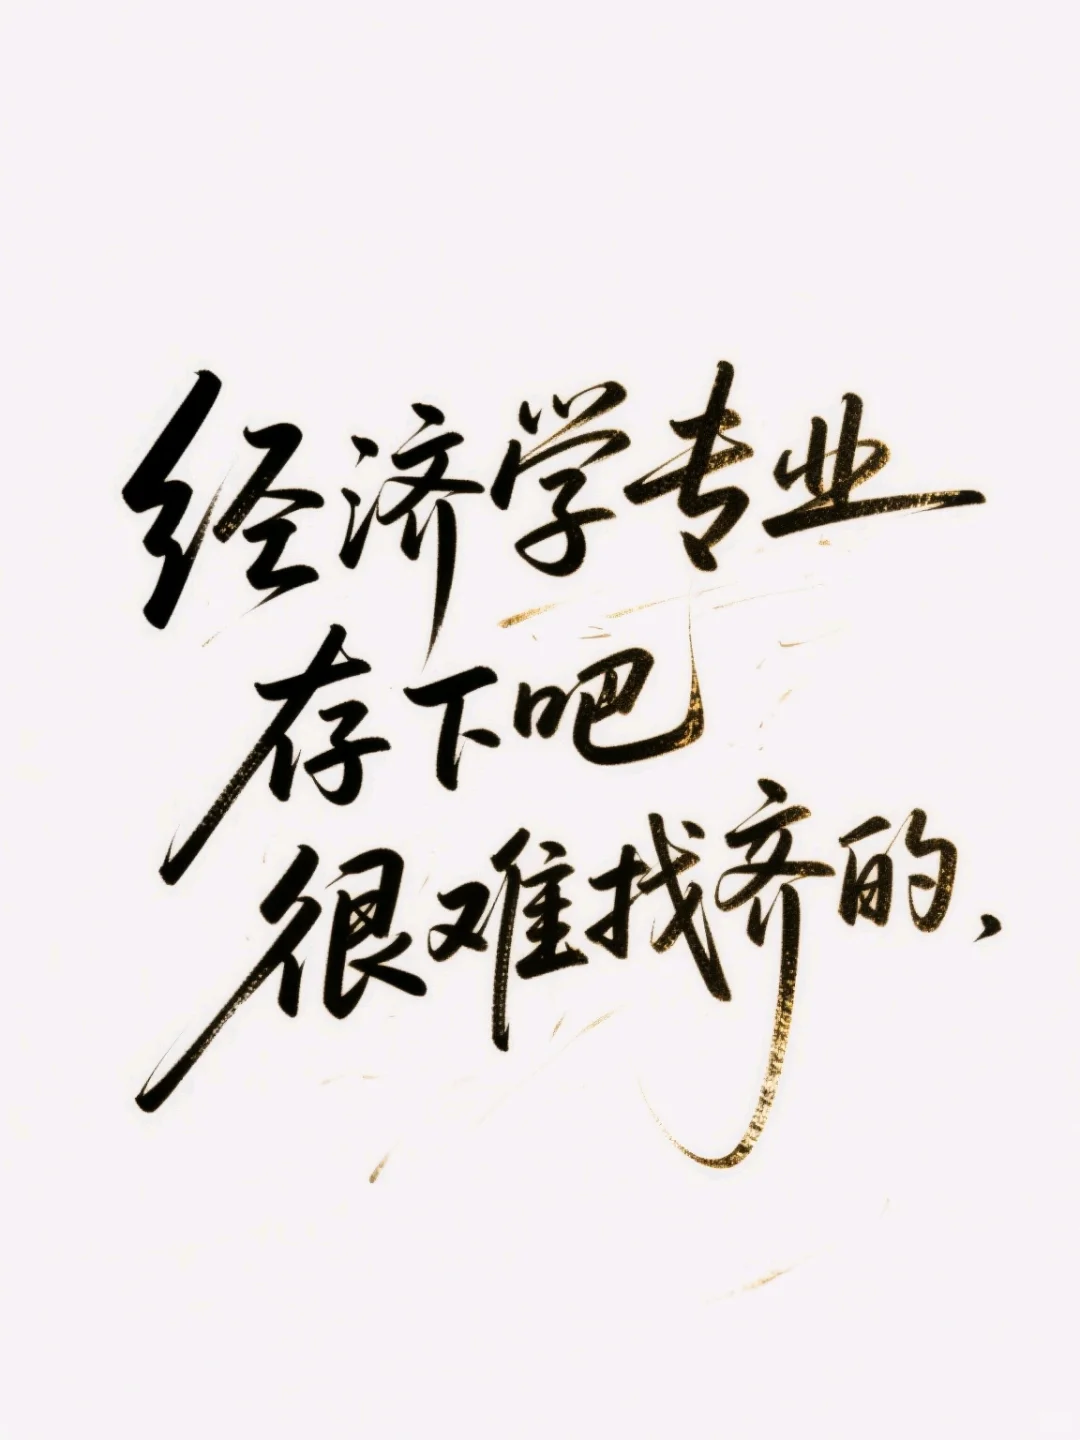 经济学专业
存下吧
很难找齐的、